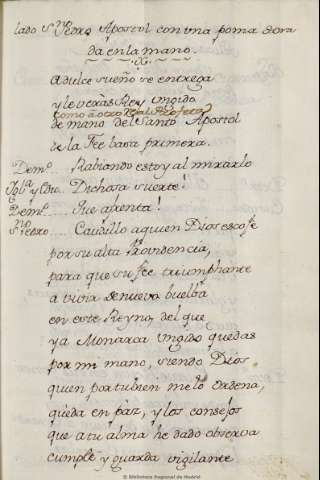 lado Sn. Pedro Apostol con una poma dora
da en la mano.
a dulce sueño se entrega
y le veràs Rey ungido
como à otro Real Profeta
de mano del Santo Apostol
de la Fee basa primera.
Demo. .... Rabiando estoy al mirarlo
Ygla. y Cto. Dichosa suerte!
Demo. .... Fue afrenta!
Sn. Pedro .... Caudillo aquien Dios escoje
por su alta Providencia,
para que su Fee triumphante
a vivir de nuevo buelba
en este Reyno, del que
ya Monarca ungido quedas
por mi mano, siendo Dios
quien por tu bien me lo ordena,
queda en paz, y los consejos
que a tu alma he dado observa
cumple y guarda vigilante
© Biblioteca Regional de Madrid